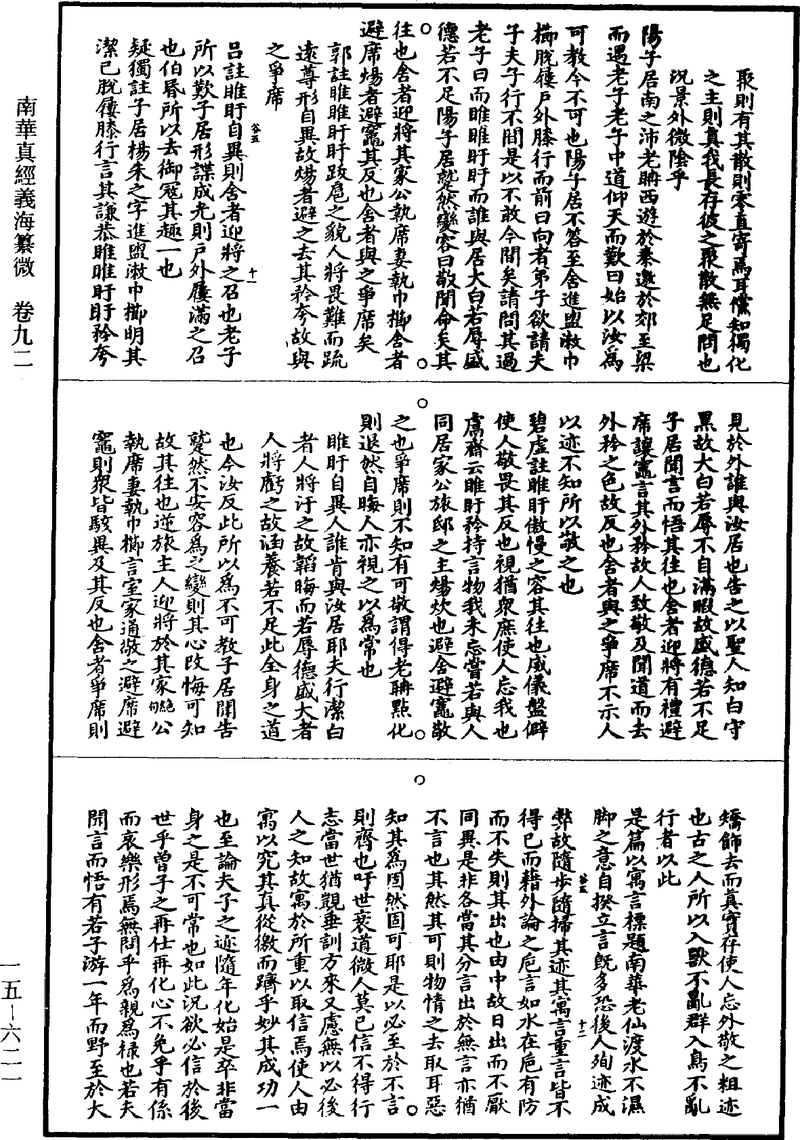 南華真經義海纂微　卷九二
聚則有其散則零直寄焉耳儻知獨化
之主則真我長存彼之聚散無足問也
況景外微陰乎
陽子居南之沛老聃西遊於秦邀於郊至梁
而遇老子老子中道仰天而歎曰始以汝爲
可教今不可也陽子居不答至舍進盥漱巾
櫛脫屨戶外膝行而前曰向者弟子欲請夫
子夫子行不間是以不敢今間矣請問其過
老子曰而睢睢盱盱而誰與居大白若辱盛
德若不足陽子居蹵然變容曰敬聞命矣其
往也舍者迎將其家公執席妻執巾櫛舍者
避席煬者避竈其反也舍者與之爭席矣
郭註睢睢盱盱跋扈之貌人將畏難而踈
遠尊形自異故煬者避之去其矜夸故與
之爭席
呂註睢盱自異則舍者迎將之召也老子
所以歎子居形諜成光則戶外屨滿之召
也伯昏所以去御冦其趣一也
疑獨註子居楊朱之字進盥漱巾櫛明其
潔己脫屨膝行言其謙恭睢睢盱盱矜夸
見於外誰與汝居也告之以聖人知白守
黑故大白若辱不自滿暇故盛德若不足
子居聞言而悟其往也舍者迎將有禮避
席讓竈言其外矜故人致敬及聞道而去
外矜之色故反也舍者與之爭席不示人
以迹不知所以敬之也
碧虛註睢盱傲慢之容其往也威儀盤僻
使人敬畏其反也視猶衆庶使人忘我也
鬳齋云睢盱矜持言物我未忘嘗若與人
同居家公旅邸之主煬炊也避舍避竈敬
之也爭席則不知有可敬謂得老聃點化
則退然自晦人亦視之以爲常也
睢盱自異人誰肯與汝居耶夫行潔白
者人將汙之故韜晦而若辱德盛大者
人將虧之故涵養若不足此全身之道
也今汝反此所以爲不可教子居聞告
蹵然不安容爲之變則其心改悔可知
故其往也逆旅主人迎將於其家句絕公
執席妻執巾櫛言室家通敬之避席避
竈則衆皆駭異及其反也舍者爭席則
矯飾去而真實存使人忘外敬之粗迹
也古之人所以入獸不亂群入鳥不亂
行者以此
是篇以寓言標題南華老仙渡水不濕
脚之意自揆立言既多恐後人殉迹成
弊故隨步隨掃其迹其寓言重言皆不
得已而藉外論之巵言如水在巵有防
而不失則其出也由中故日出而不厭
同異是非各當其分言出於無言亦猶
不言也其然其可則物情之去取耳惡
知其爲固然固可耶是以必至於不言
則齊也吁世衰道微人莫已信不得行
志當世猶覬垂訓方來又慮無以必後
人之知故寓於所重以取信焉使人由
寓以究其真從徼而躋乎妙其成功一
也至論夫子之迹隨年化始是卒非當
身之是不可常也如此況欲必信於後
世乎曾子之再仕再化心不免乎有係
而哀樂形焉無問乎爲親爲祿也若夫
聞言而悟有若子游一年而野至於大
一五—六二一